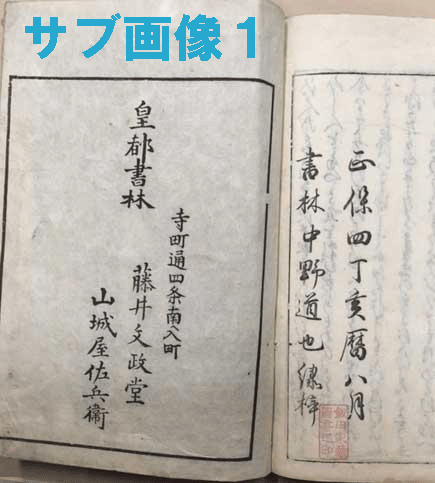 サブ画像1
正保四丁亥暦八月
書林中野道也繍梓
皇都書林
寺町通四条南入町
藤井文政堂
山城屋佐兵衛